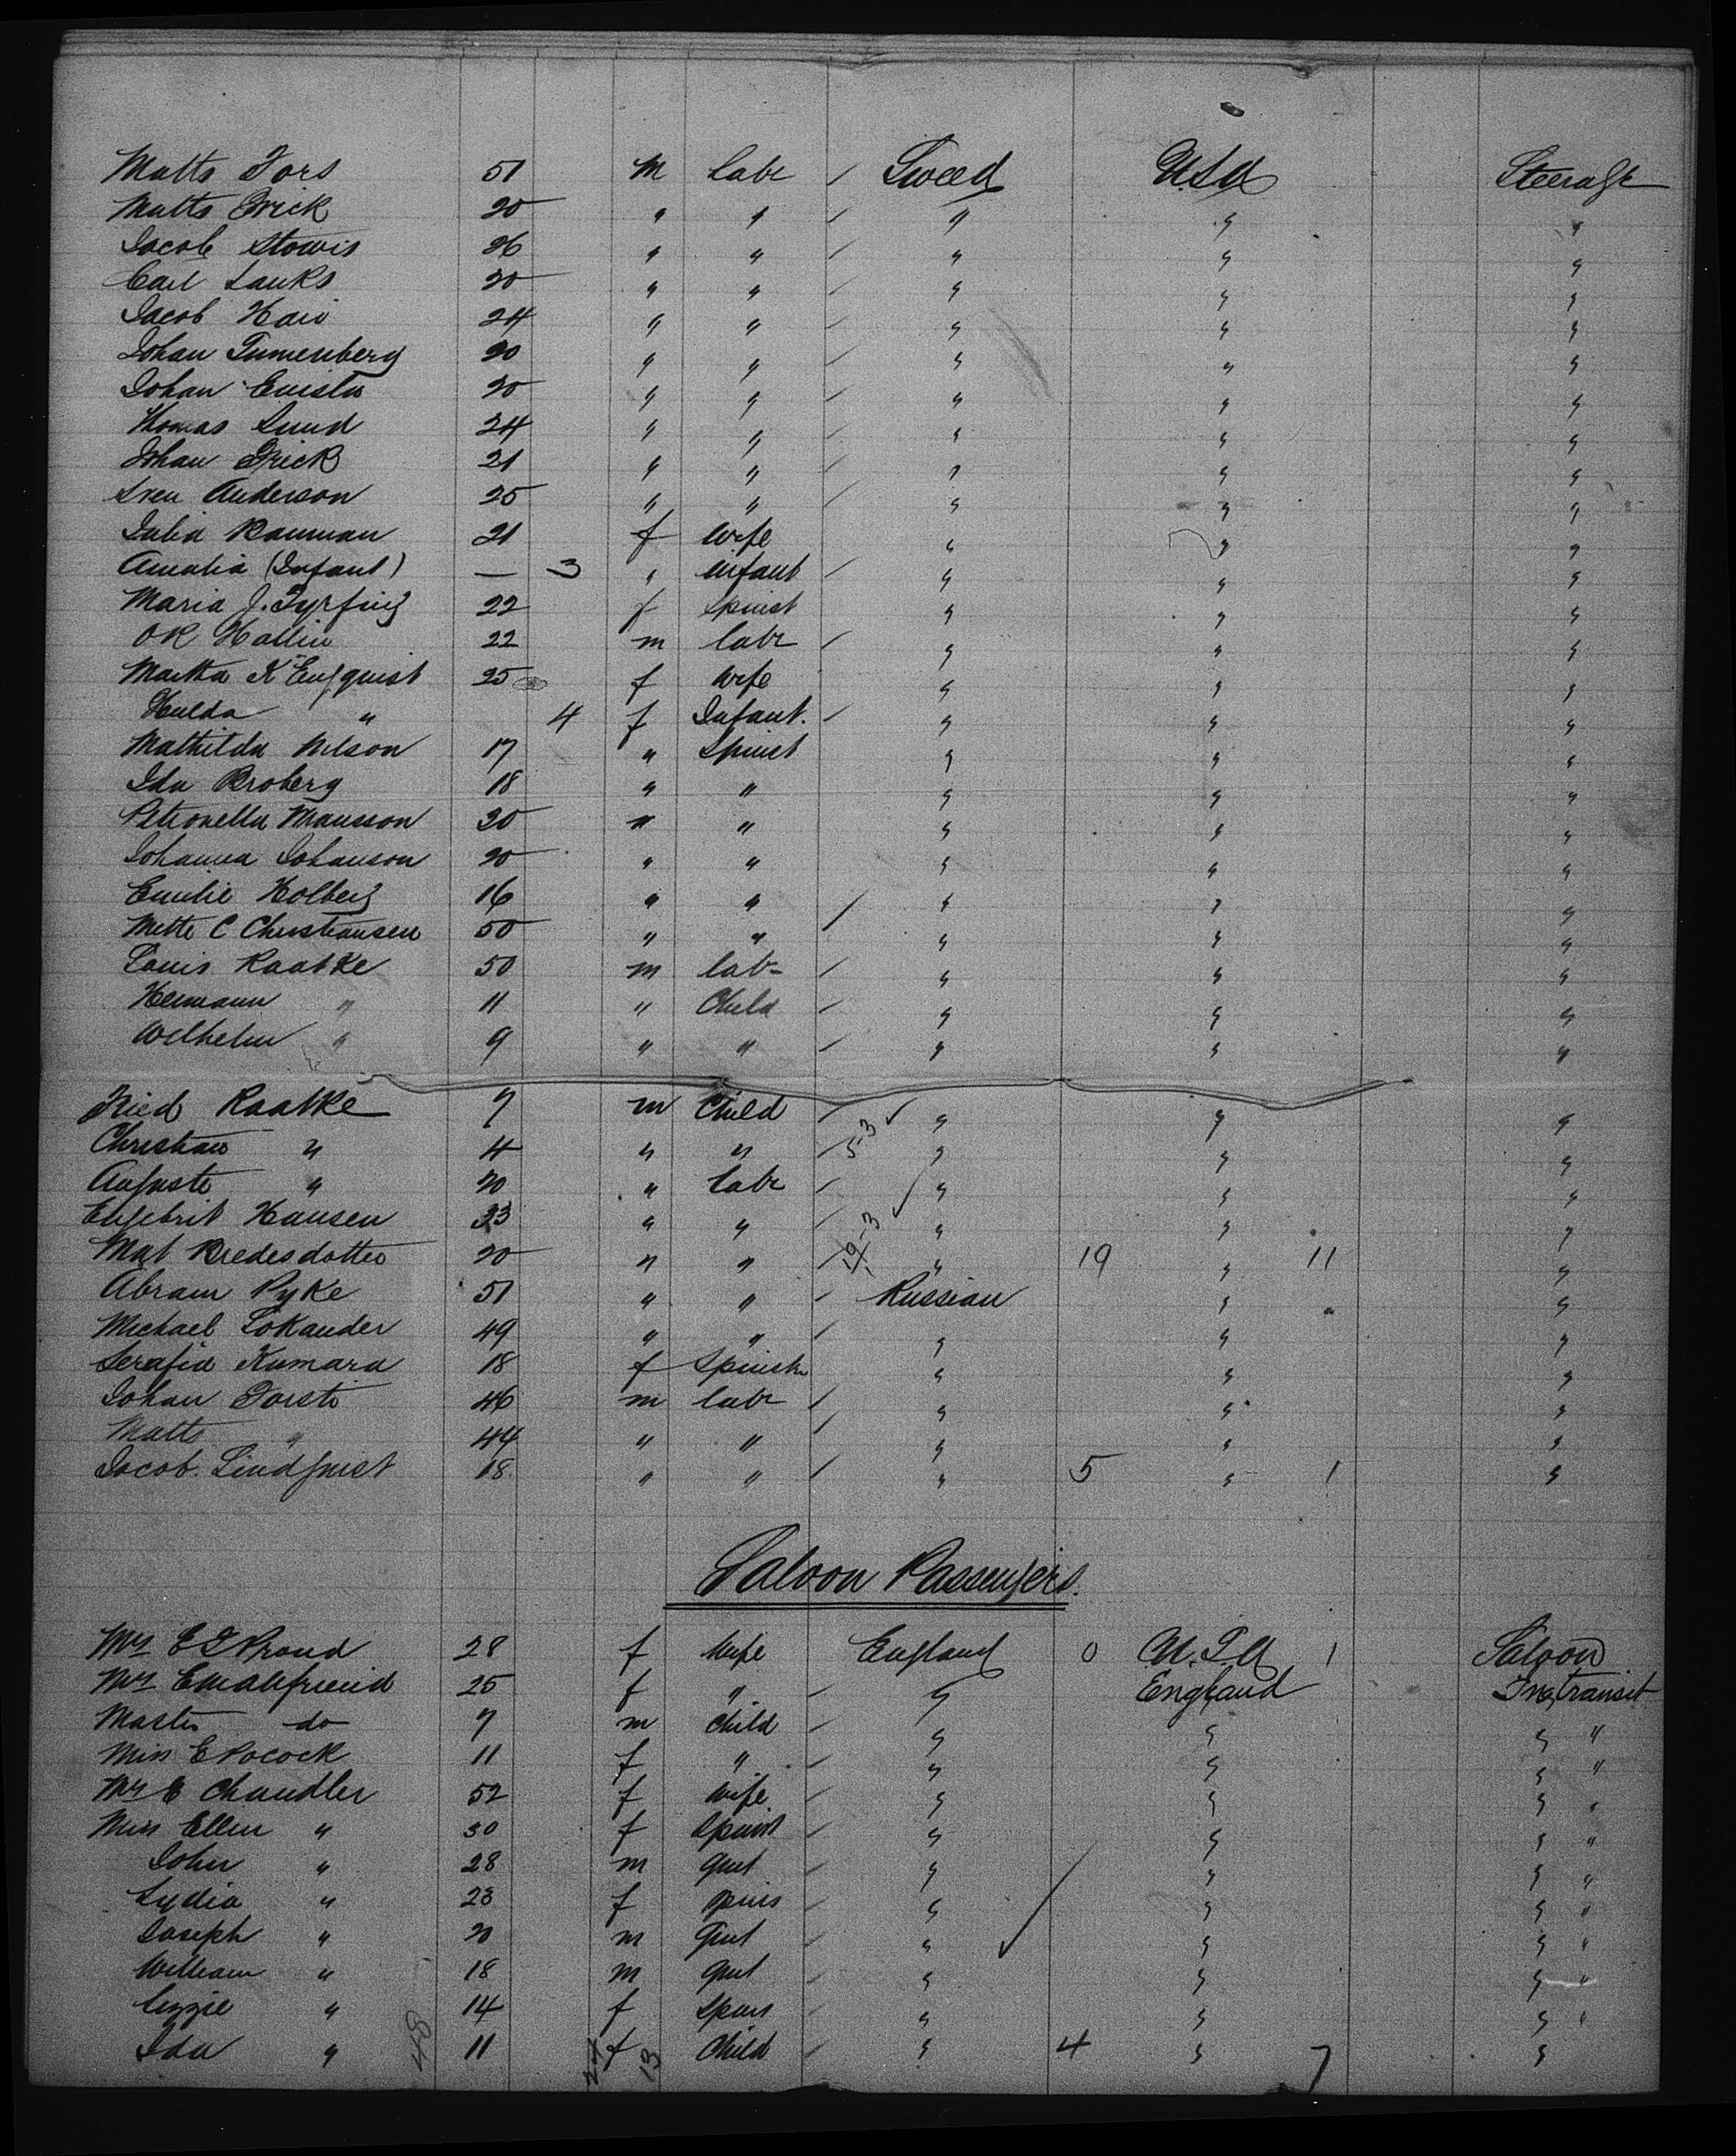 Matts Fors 51 M Labr / Sweed U.S.A Steerage
Matts Erick 20 " " / " " "
Jacob Stowis 26 " " / " " "
Carl Lauks 20 " " / " " "
Jacob 24 " " / " " "
Johan 20 " " / " " "
Johan 20 " " / " " "
Thomas Lund 24 " " / " " "
Johan Erick 21 " " / " " "
Sven Anderson 25 " " / " " "
Julia Bauman 21 f Wife " " "
Amalia (Infant) — 3 " infant / " " "
Maria J. Tyrfing 22 f Spinst " " "
OK Hallin 22 m labr / " " "
Martha K Engquist 25 f Wife " " "
Hulda " 4 f Infant. / " " "
Mathilda Nelson 17 " Spinst " " "
Ida Broberg 18 " " " " "
Petronella Mansson 30 " " " " "
Johanna Johanson 20 " " " " "
Emilie Holberg 16 " " " " "
Mette C Christiansen 50 " " / " " "
Louis Raatke 50 m lab- / " " "
Hermann " 11 " Child / " " "
Wilhelm " 9 " " / " " "
Fried Raatke 7 m Child / " " "
Christian " 4 " " / 5-3 " " "
Auguste " 20 " Labr / " " "
Engebrit Hansen 33 " " / " " "
Mat Bredesdotter 20 " " / 19-3 " 19 " 11 "
Abram Pyke 51 " " / Russian " "
Michael Lokander 49 " " / " " "
Serafia Kumara 18 f Spinstr " " "
Johan Forsti 46 m labr / " " "
Matts " 44 " " / " " "
Jacob Lindqvist 18 " " / " 5 " 1 "
Saloon Passengers.
Mrs E Proud 28 f Wife England 0 U.S.A 1 Saloon
Mrs E Makefriend 25 f " / " England In transit
Master do 7 m Child / " " " "
Miss E Pocock 11 f " / " " " "
Mrs E Chandler 52 f Wife / " " " "
Miss Ellen " 30 f Spinst / " " " "
John " 28 m Gent / " " " "
Lydia " 23 f Spins / " " " "
Joseph " 20 m Gent / " " " "
William " 18 m Gent / " " " "
Lizzie " 14 f Spins / " " " "
Ida " 48 11 24 f 13 Child / " 4 " 7 "